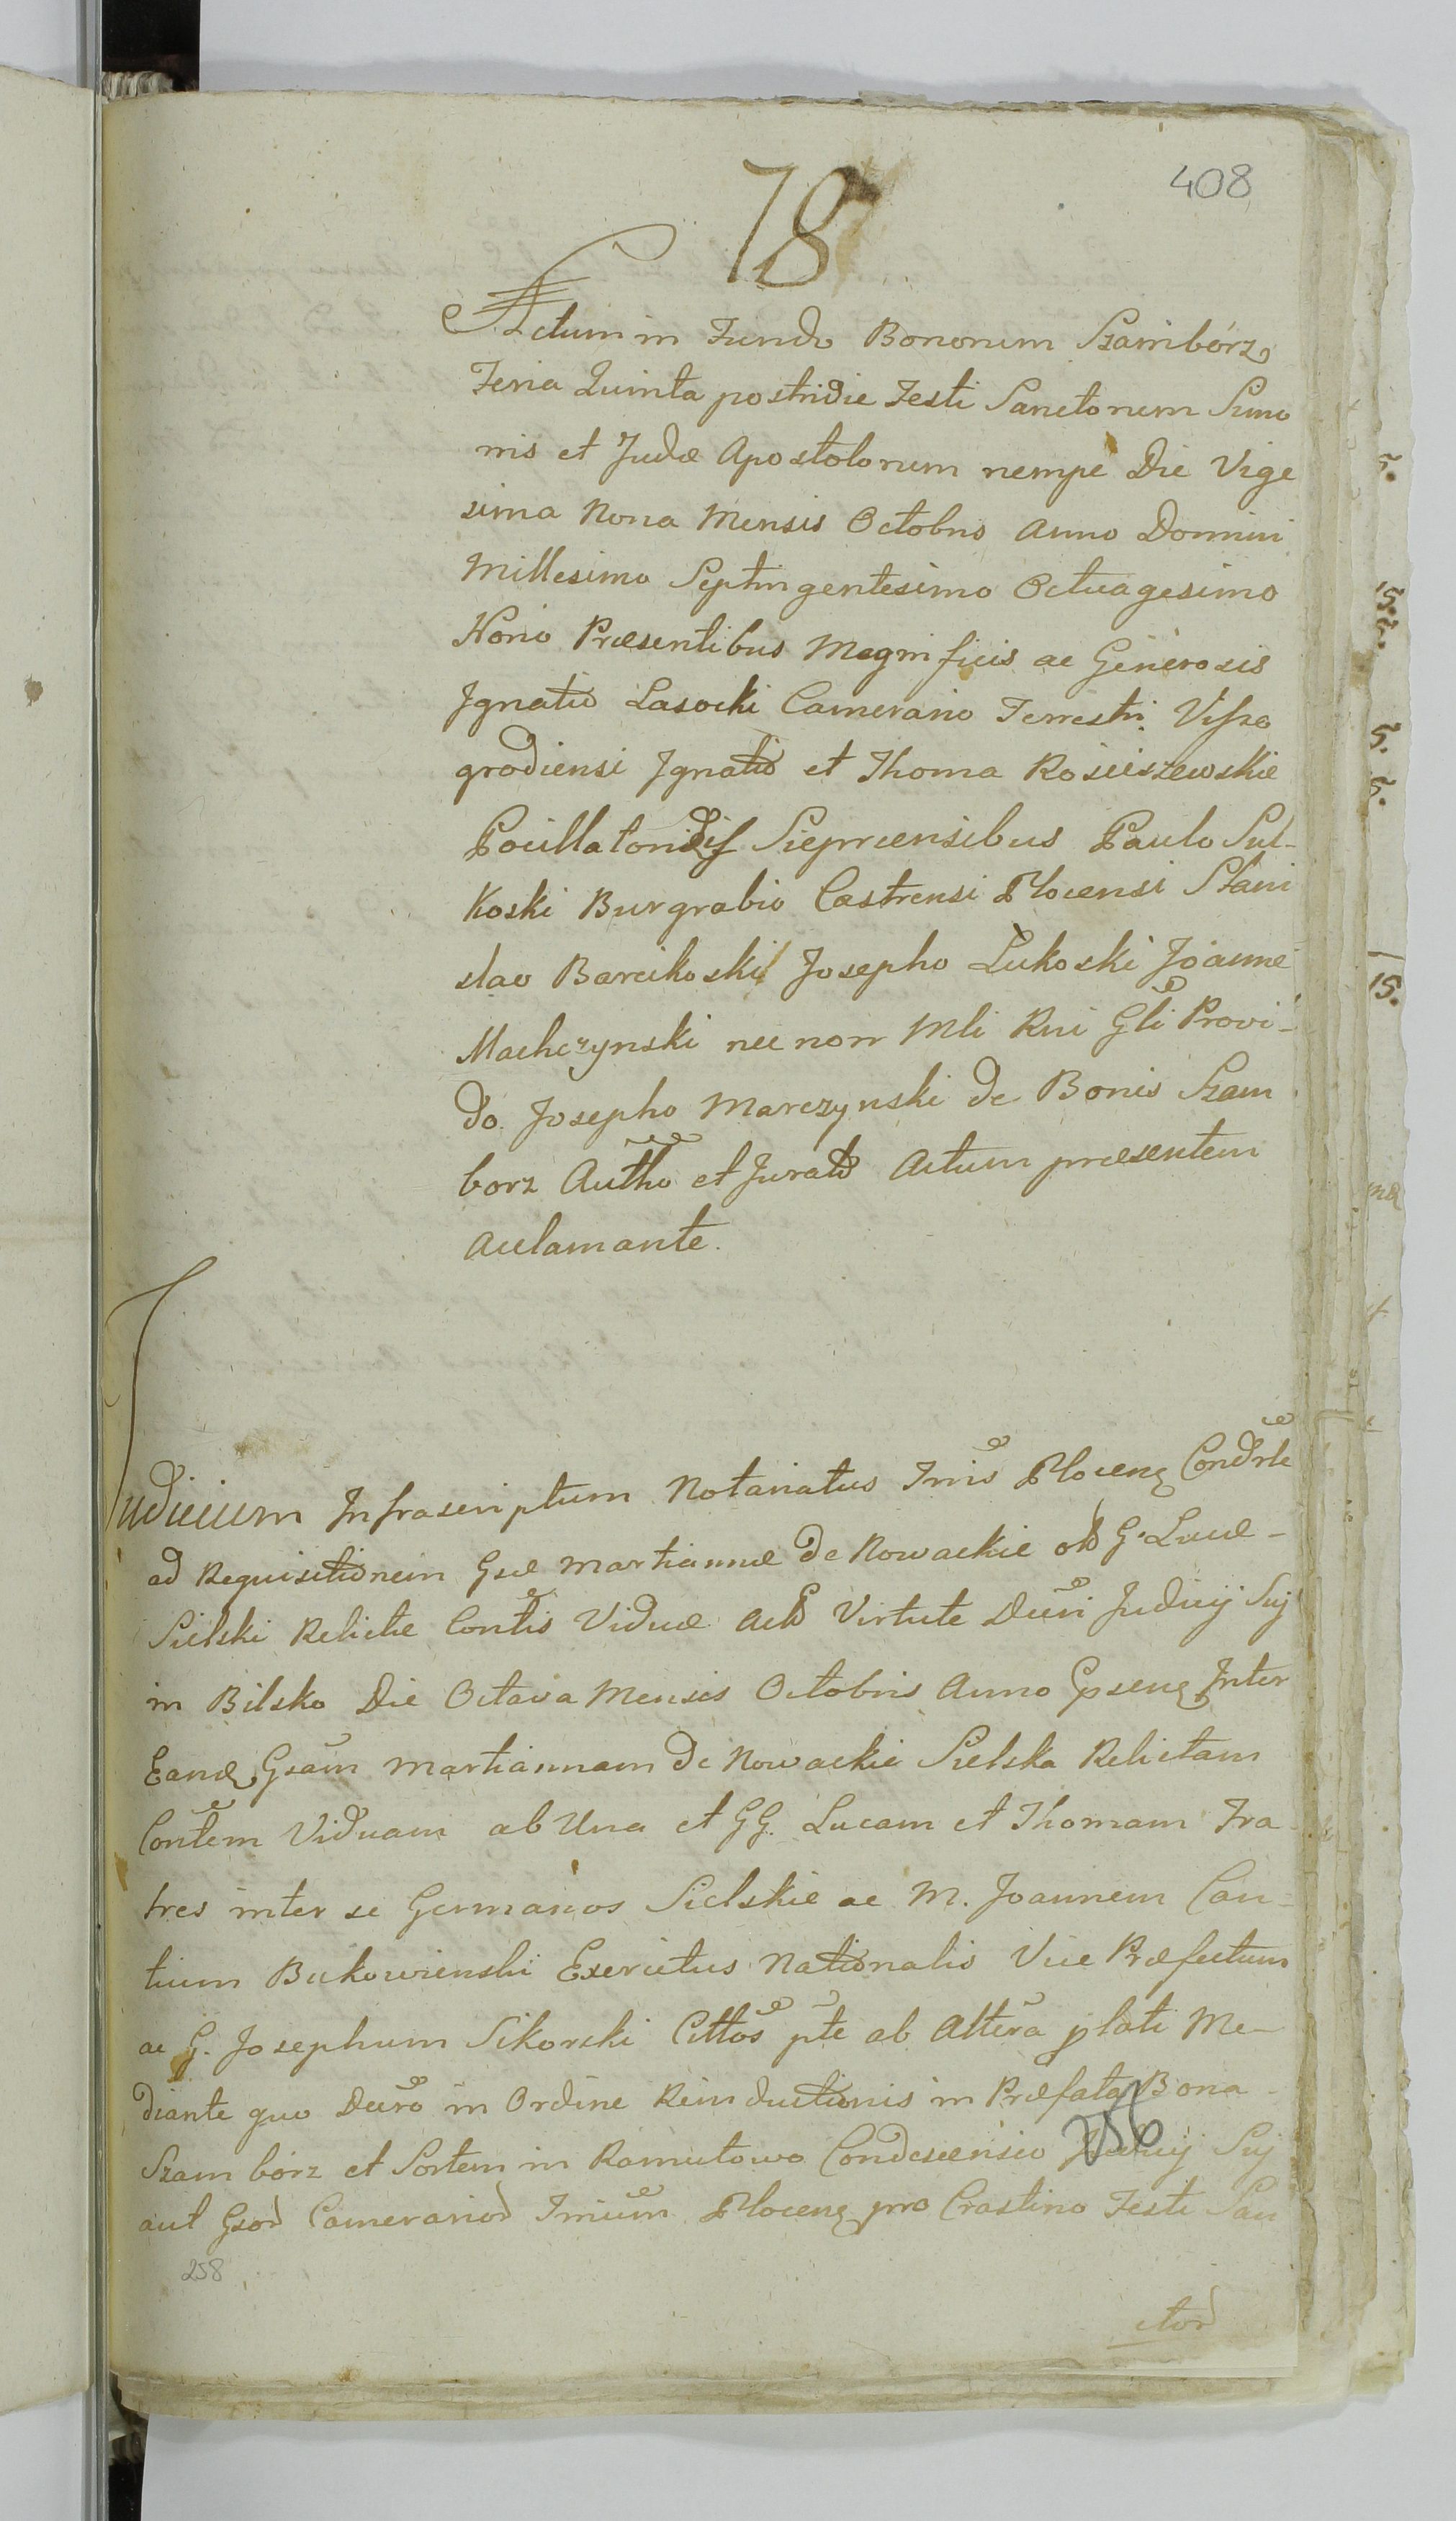 408
78
Actum in Fundo Bonorum Szambórz
Feria Quinta postridie Festi Sanctorum Simo
nis et Judæ Apostolorum nempe Die Vige
sima Nona Mensis Octobris Anno Domini
Millesimo Septingentesimo Octuagesimo
Nono Præsentibus Magnificis ac Generosis
Ignatio Lasocki Camerario Terrestri Visso
grodiensi Ignatio et Thoma Kosciszewskie
Pocillatoribus Sieprcensibus Paulo Sul-
koski Burgrabio Castrensi Plocensi Stani
slao Barcikoski Josepho Łukoski Joanne
Machczynski nec non Mli Rni Gli Provi-
do Josepho Marczynski de Bonis Szam
borz Autho et Jurato Actum præsentem
Acclamante.
Judicium Infrascriptum Notariatus Trris Plocens Condrle
ad Requisitionem Gsæ Martiannæ de Nowackie olo G. Lucæ-
Sielski Relictæ Contis Viduæ Acto Virtute Decri Judicij Suj
in Bilsko Die Octava Mensis Octobris Anno Psenq Inter
Eand Gsam Martiannam de Nowackie Sielska Relictam
Contem Viduam ab Una et GG. Lucam et Thomam Fra
tres inter se Germanos Sielskie ac M. Joannem Can-
tium Bukowienski Exercitus Nationalis Vice Præfectum
ac G. Josephum Sikorski Cittos pte ab Altera plati Me-
diante quo Decro in Ordine Reinductionis in Præfata Bona
Szamborz et Sortem in Ramutowo Condescensio Judicij Suj
aut Gsod Camerariod Trrium Plocenq pro Crastino Festi San
256
258
ctod